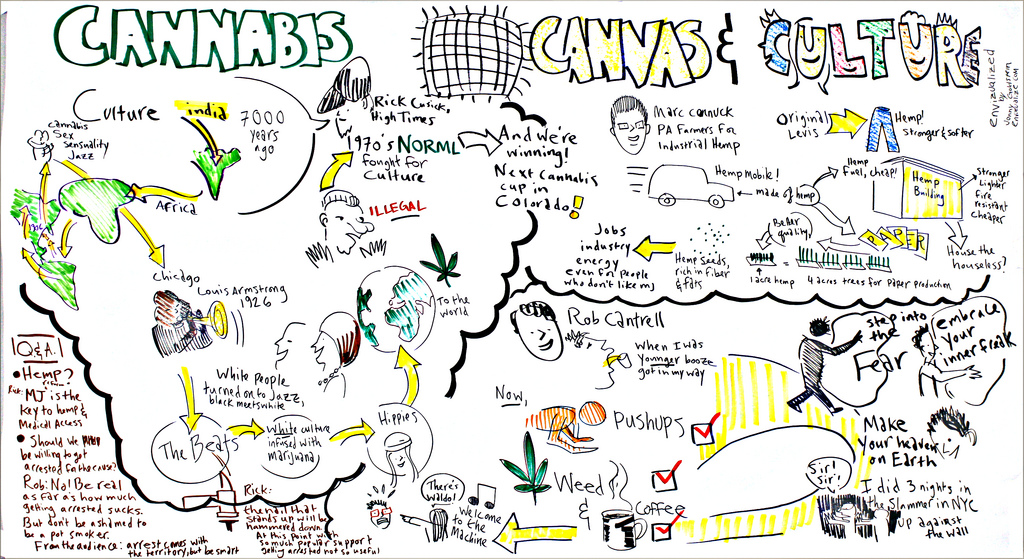 CANNABIS
CANVAS & CULTURE
envizualized
by
Culture
india
7000
years
ago
cannabis
Sex
sensuality
Jazz
Africa
Chicago
Louis Armstrong
1926
Rick Cusick,
High Times
1970's NORML
fought for
Culture
ILLEGAL
And we're
winning!
Next cannabis
cup in
Colorado!
White people
turned on to Jazz,
black meets white
The Beats
White culture
infused with
marijuana
Hippies
To the
world
Marc
PA Farmers For
Industrial Hemp
Original
Levis
Hemp!
Stronger & softer
Hemp Mobile!
made of hemp
Hemp
Fuel, cheap!
Hemp
Building
Stronger
Lighter
Fire
resistant
Cheaper
House the
houseless?
Better
quality
PAPER
1 acre hemp = 4 acres trees for paper production
Hemp seeds,
rich in fiber
& fats
Jobs
industry
energy
even for people
who don't like mj
Rob Cantrell
When I was
younger booze
got in my way
Now,
Pushups
Weed
&
Coffee
step into
the
Fear
embrace
your
inner freak
Make
your heaven
on Earth
Sir!
Sir!
I did 3 nights in
the Slammer in NYC
Up against
the wall
There's
Waldo!
Welcome
to the
Machine
Q&A
• Hemp?
Rick: MJ is the
key to hemp &
Medical Access
• Should we
be willing to get
arrested for the cause?
Rob: No! Be real
as far as how much
getting arrested sucks.
But don't be ashamed to
be a pot smoker.
From the audience: arrest comes with
the territory, but be smart
Rick:
the nail that
stands up will be
hammered down.
At this point with
so much popular support
getting arrested not so useful